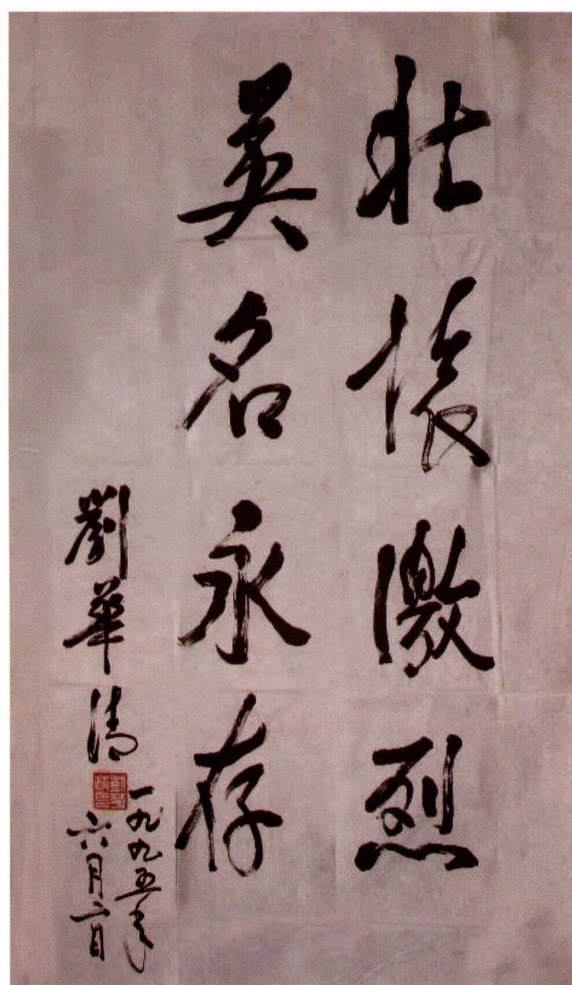 壮懷激烈
英名永存
劉華清
一九九五年
六月二日